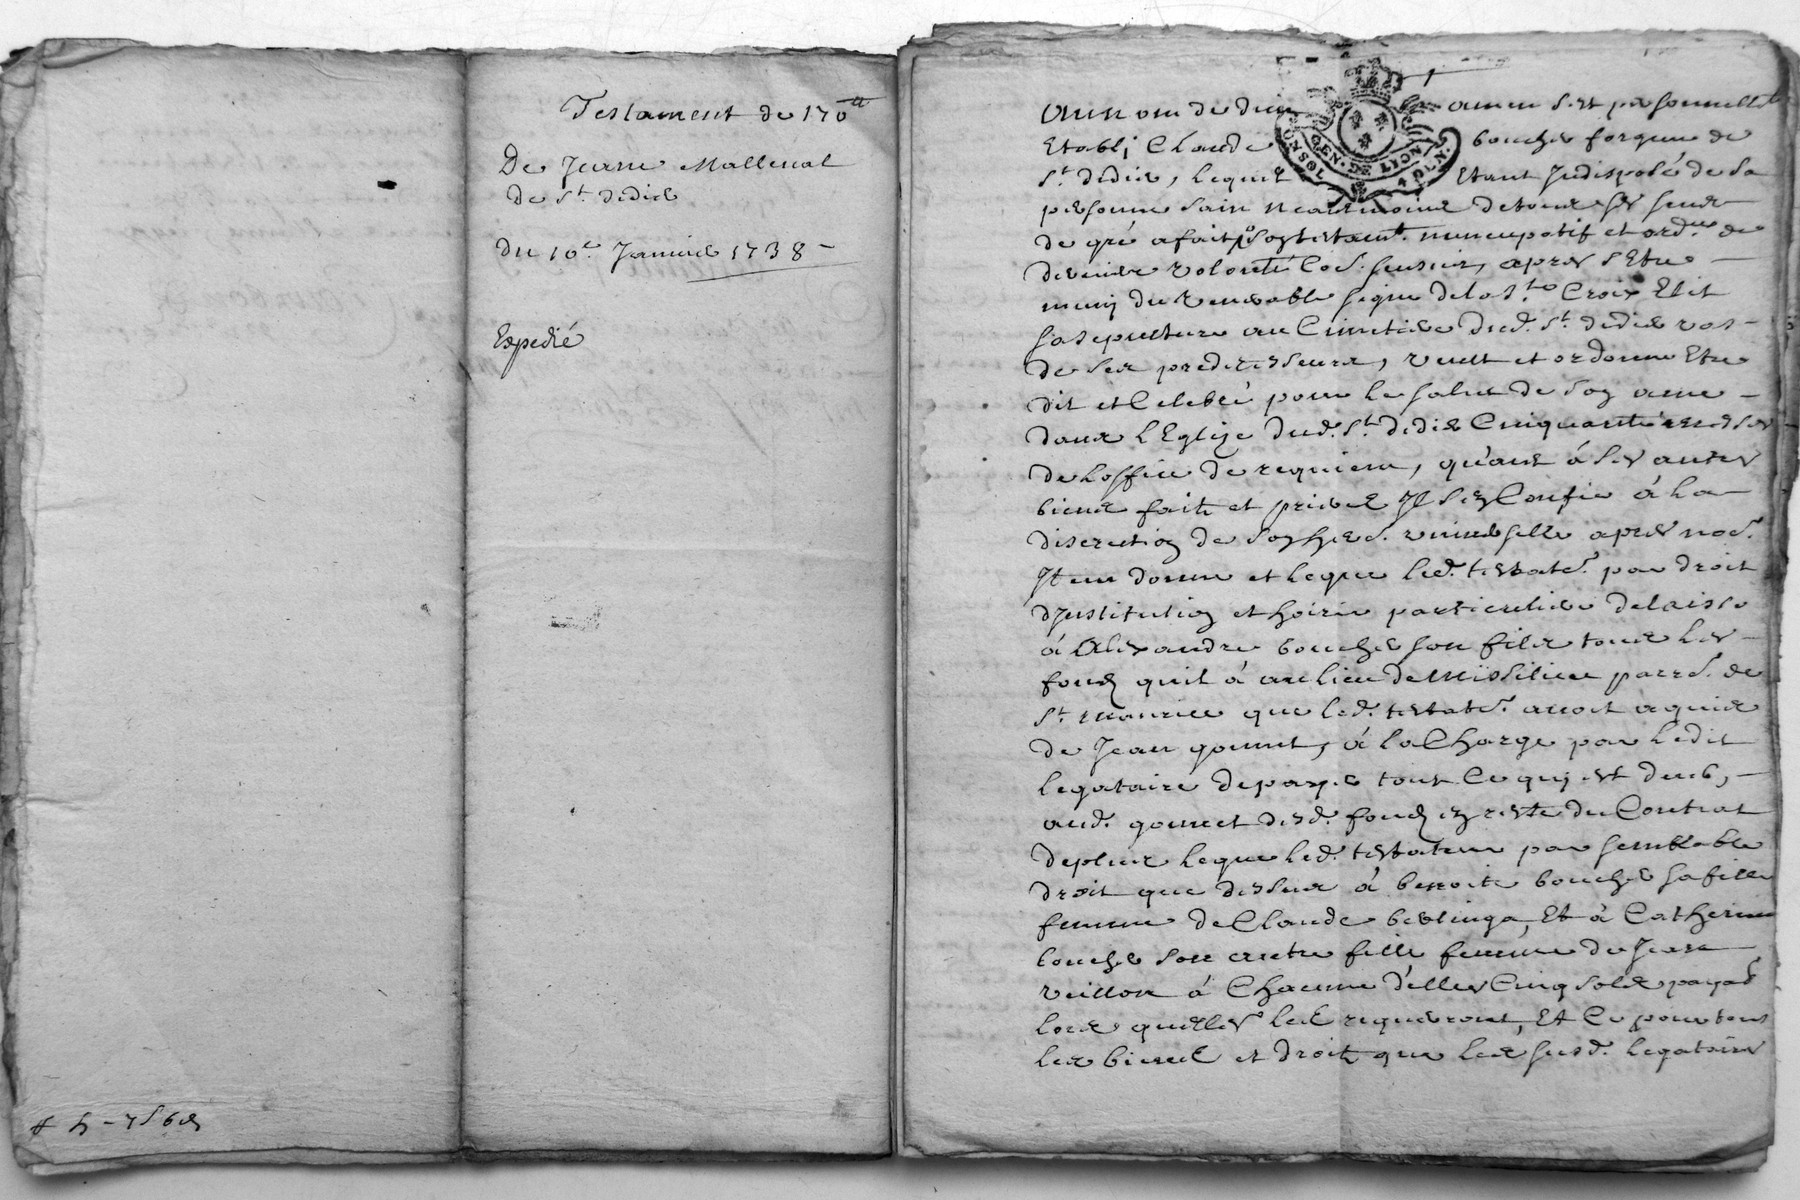 Testament de 170 tt
De Jeane Mallenal
De St. didier
du 10e. Janvier 1738 -
Expedié
Au nom de dieu amen s'est personnellet
Etabli Claude bouchet forgeur de
St. didier, lequel Etant Indisposé de sa
personne sain neantmoins de tous ses sens
de gré a fait son testamt. nuncupatif et ordce de
derniere volonté Co. s'ensuit, apres s'Etre
muny du venerable signe de la Ste Croix Elit
sa sepulture au Cimetiere dud. St. didier vas
de ses predecesseurs, veult et ordonne Etre
dit et Celebré pour le salut de son ame
dans l'Eglize dud. St. didier Cinquante messes
de loffice de requiem, qu'ant á ses autres
biens faits et prieres Il s'en Confie á la
discretion de son hered. universelle apres nod.
Item donne et legue led. testatr. par droit
d'Institution et hoirie particuliere delaisse
á Alexandre bouchet son fils tous les
fonds quil á au lieu de Missilieu parrs. de
St. maurice que led. testatr. avoit aquis
de Jean gonnet, á la Charge par ledit
legataire de payer tout Ce qui est deub,
aud. gonnet desd. fonds en reste du Contrat
de plus legue led. testateur par semblable
droit que dessus á benoite bouchet sa fille
femme de Claude berlinga, Et á Catherine
bouchet son autre fille femme de Jean
veillon á Chacune d'elles Cinq sols payab.
lors quelles les requerront, Et Ce pour tous
les biens et droits que les susd. legataires